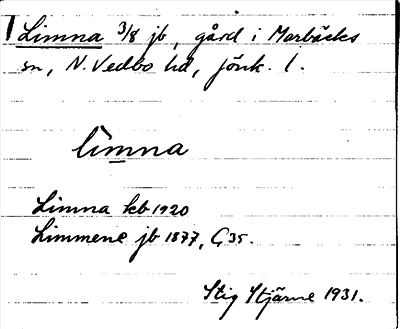 Limna 3/8 jb, gård i Marbäcks
sn, N. Vedbo hd, Jönk. l.
limna
Limna kb 1920
Limmene jb 1877, G35.
Stig Stjärne 1931.